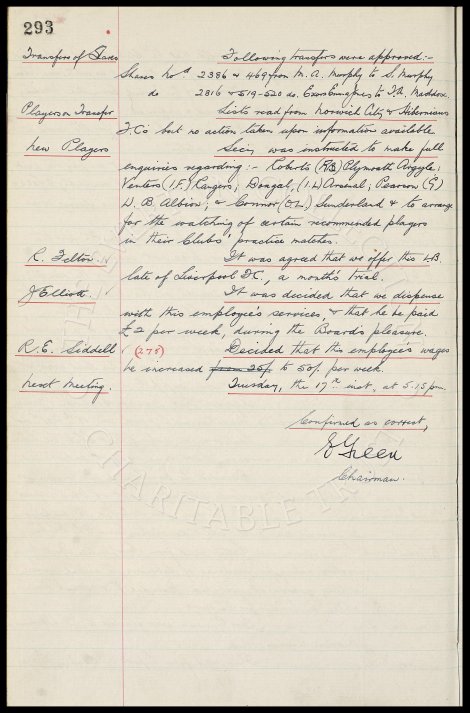 293
Transfers of Shares Following transfers were approved:-
Shares Nos 2386 & 469 from M. A. Murphy to S. Murphy
do 2816 & 519-520 do. Exors to T.A. Maddox
Players on Transfer Lists read from Norwich City & Hibernians
F.Cs but no action taken upon information available
New Players Secy. was instructed to make full
enquiries regarding:- Roberts (R/B) Plymouth Argyle;
Venters (I.F.) Rangers; Dougal, (I.L) Arsenal; Pearson (G)
W. B. Albion; & Connor (O.L.) Sunderland & to arrange
for the watching of certain recommended players
in their Clubs' practice matches.
R. Felton. It was agreed that we offer this L/B
late of Liverpool F.C., a month's trial.
J Elliott. It was decided that we dispense
with this employee's services, & that he be paid
£2 per week, during the Board's pleasure.
R. E. Liddell (275) Decided that this employee's wages
be increased from 35/- to 50/- per week.
Next Meeting. Tuesday, the 17th inst, at 5.15 pm.
Confirmed as correct,
E Green
Chairman.
CHARITABLE